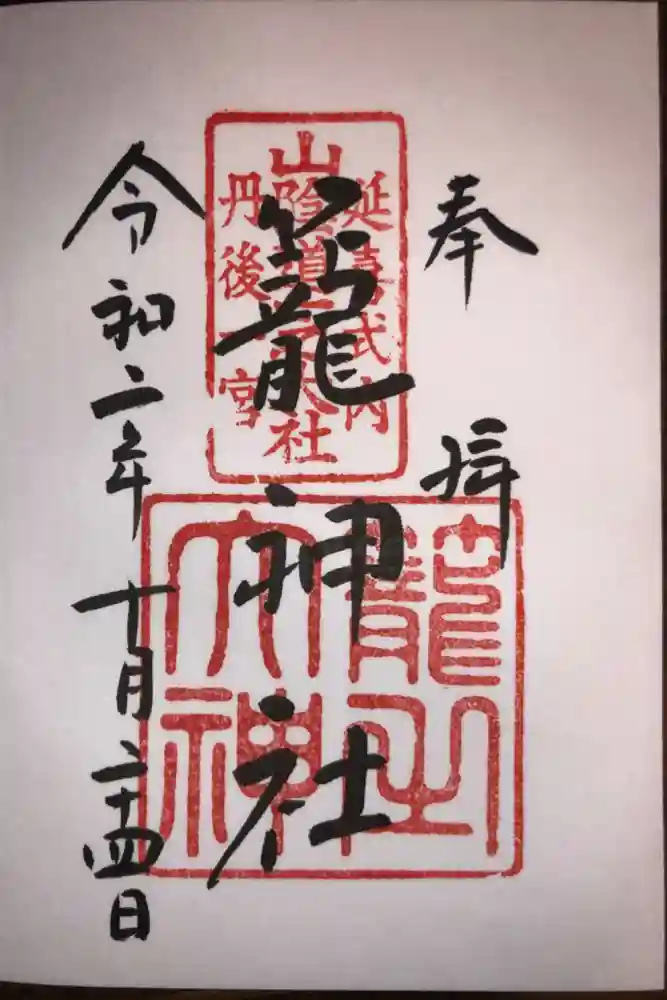 奉拝
延喜式内
山陰道一之大社
丹後一宮
籠神社
籠之
大神
令和二年十月二十四日